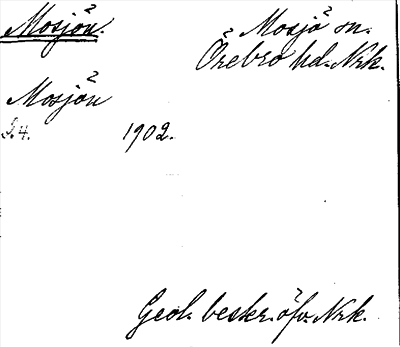 Mosjön.
Mosjö sn.
Örebro hd. Nrk.
Mosjön
S. 4. 1902.
Geol. beskr. öfv. Nrk.